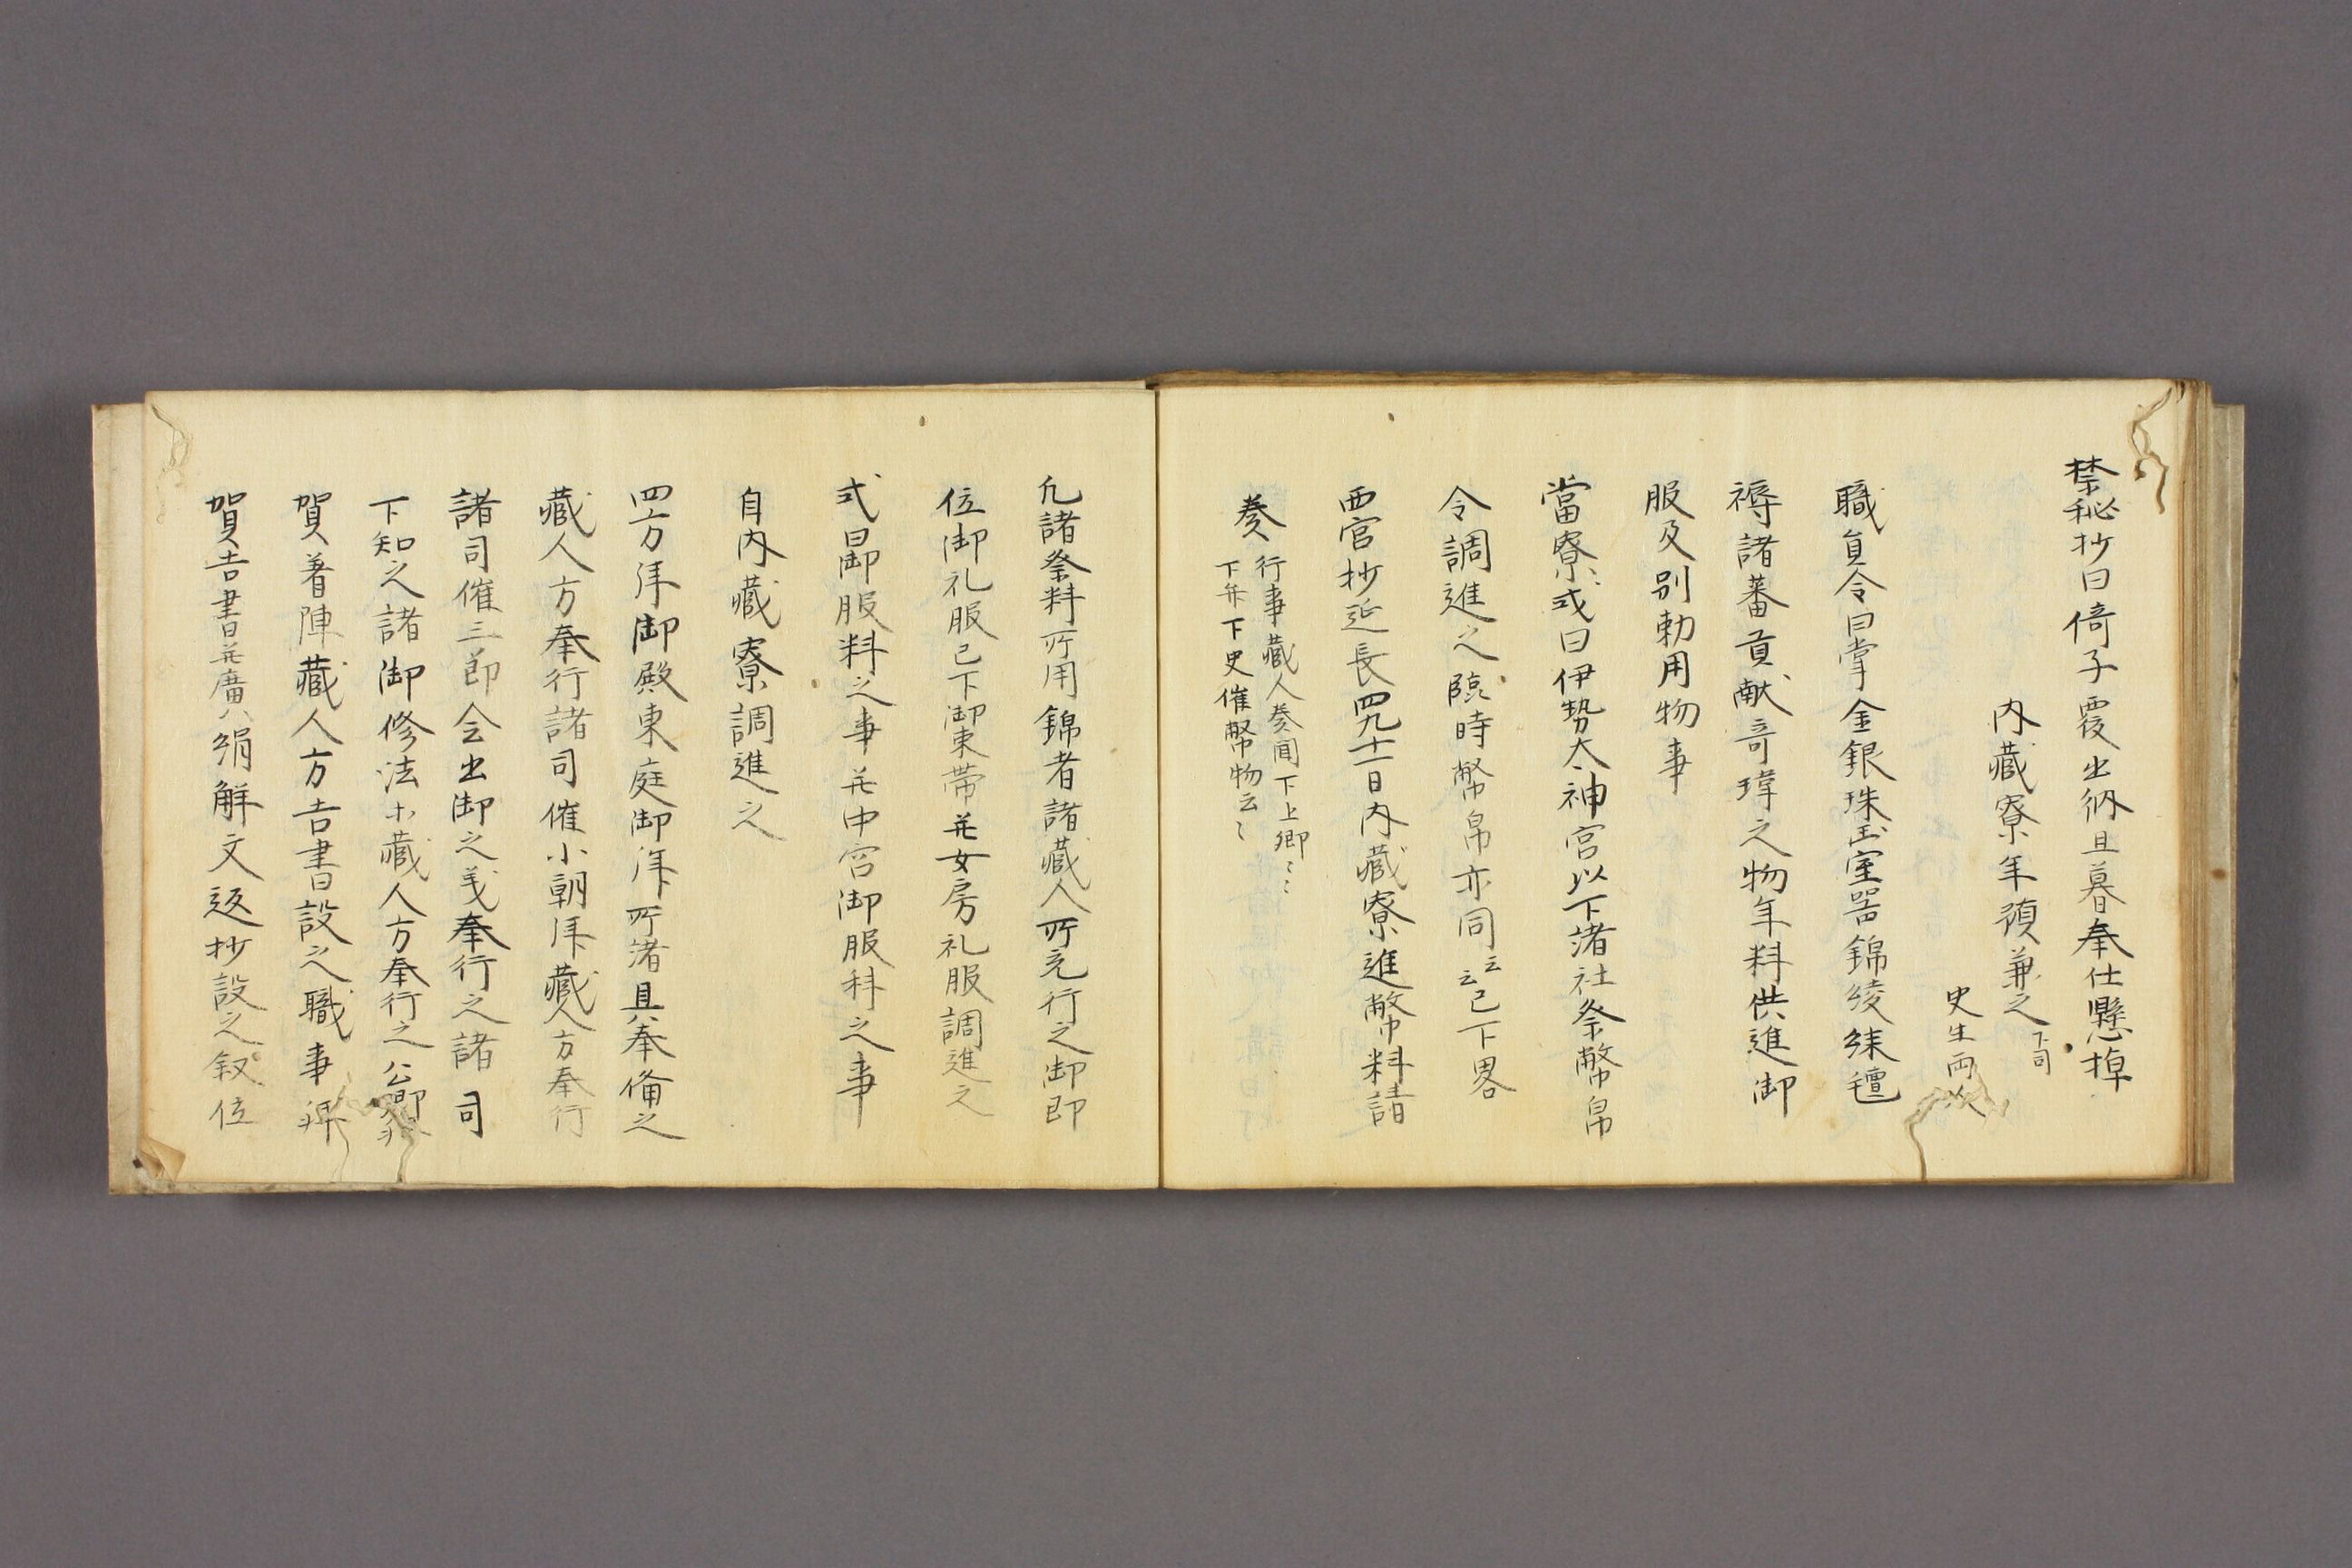 禁秘抄曰倚子覆出納旦暮奉仕懸掉
内藏寮年預兼之下司
史生両人
職員令曰掌金銀珠玉宝器錦綾綵氊
褥諸蕃貢献奇瑋之物年料供進御
服及別勅用物事
當寮式曰伊勢太神宮以下諸社祭幣帛
令調進之臨時幣帛亦同云云已下畧
西宮抄延長四九十一日内藏寮進幣料請
奏
行事藏人奏聞下上卿〻〻
下弁下史催幣物云〻
凡諸祭料所用錦者諸藏人所充行之御即
位御礼服已下御束帯并女房礼服調進之
式曰御服料之事并中宮御服料之事
自内藏寮調進之
四方拝御殿東庭御拝所諸具奉備之
藏人方奉行諸司催小朝拝藏人方奉行
諸司催三節会出御之義奉行之諸司
下知之諸御修法等藏人方奉行之公卿拝
賀着陣藏人方吉書設之職事拝
賀吉書并廣八絹解文返抄設之叙位